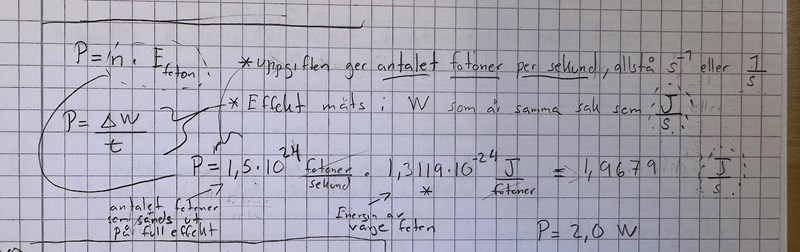 P = ṅ · E foton
* uppgiften ger antalet fotoner per sekund, alltså s⁻¹ eller 1/s
* Effekt mäts i W som är samma sak som J/s
P = ΔW/t
P = 1,5·10²⁴ fotoner/sekund · 1,3119·10⁻²⁴ J/fotoner = 1,9679 J/s
*
antalet fotoner
som sänds ut
på full effekt
Energin av
varje foton
P = 2,0 W